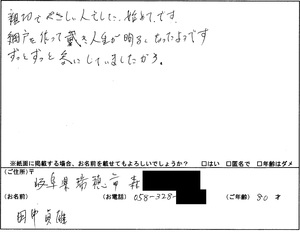 親切でやさしい人でした、始めてです。
網戸を作って戴き人生が明るくなったようです
ずっとずっと気にしていましたから。
※紙面に掲載する場合、お名前を載せてもよろしいでしょうか? □はい □匿名で □年齢はダメ
(ご住所)〒
岐阜県瑞穂市
(お名前) (お電話) 058-328- (ご年齢) 80 才
田中 貞雄